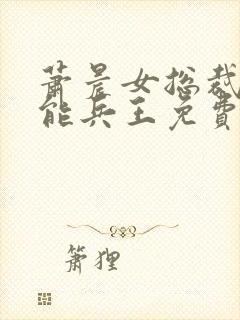 萧晨女总裁
能兵王免费
箫狸